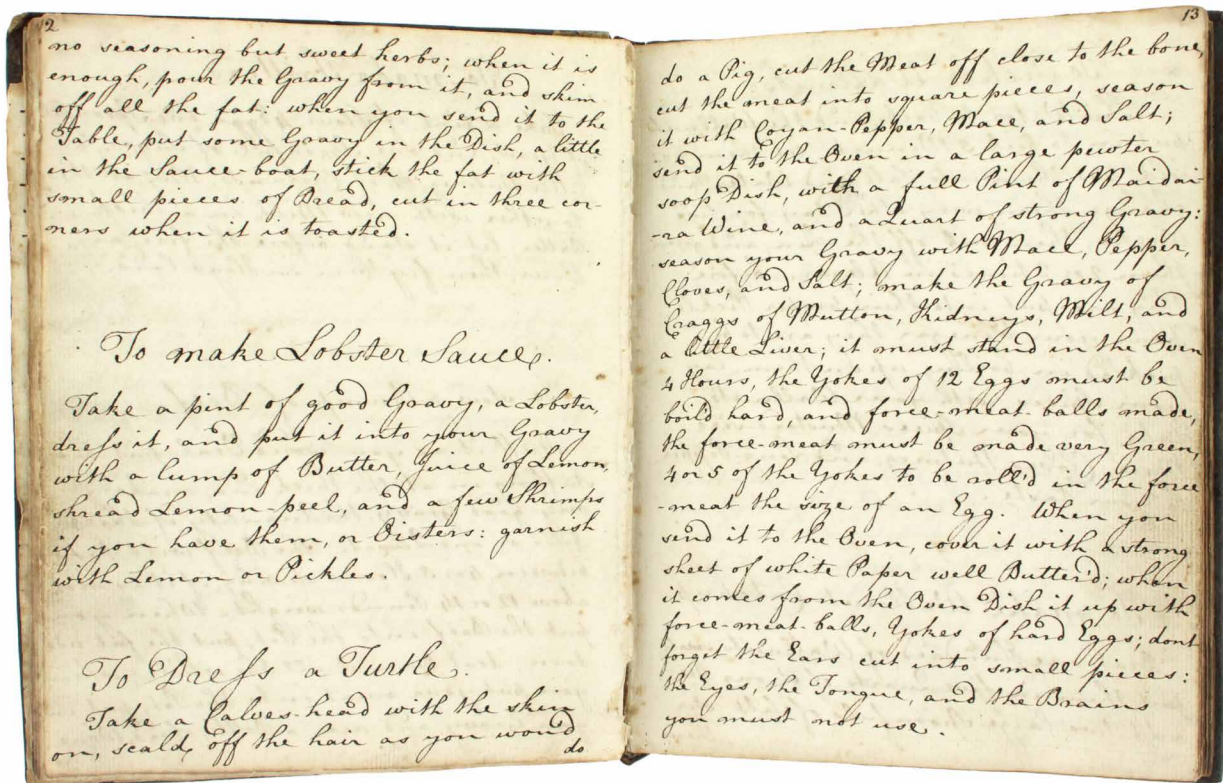 2
no seasoning but sweet herbs; when it is
enough, pour the Gravy from it, and skim
off all the fat: when you send it to the
Table, put some Gravy in the Dish, a little
in the Sauce-boat, stick the fat with
small pieces of Bread, cut in three cor-
ners when it is toasted.
To make Lobster Sauce.
Take a pint of good Gravy, a Lobster,
dress it, and put it into your Gravy
with a lump of Butter, Juice of Lemon,
shread Lemon-peel, and a few Shrimps
if you have them, or Oisters: garnish
with Lemon or Pickles.
To Dress a Turtle.
Take a Calves-head with the skin
on, scald off the hair as you wou'd
do
13
do a Pig, cut the Meat off close to the bone,
cut the meat into square pieces, season
it with Coyan-Pepper, Mace, and Salt;
send it to the Oven in a large pewter
soop Dish, with a full Pint of Maidai-
-ra Wine, and a Quart of strong Gravy:
season your Gravy with Mace, Pepper,
Cloves, and Salt; make the Gravy of
Craggs of Mutton, Kidneys, Milt, and
a little Liver; it must stand in the Oven
4 Hours, the Yokes of 12 Eggs must be
boil'd hard, and force-meat-balls made,
the force-meat must be made very Green,
4 or 5 of the Yokes to be roll'd in the force
-meat the size of an Egg. When you
send it to the Oven, cover it with a strong
sheet of white Paper well Butter'd; when
it comes from the Oven Dish it up with
force-meat-balls, Yokes of hard Eggs; dont
forget the Ears cut into small pieces:
the Eyes, the Tongue, and the Brains
you must not use.